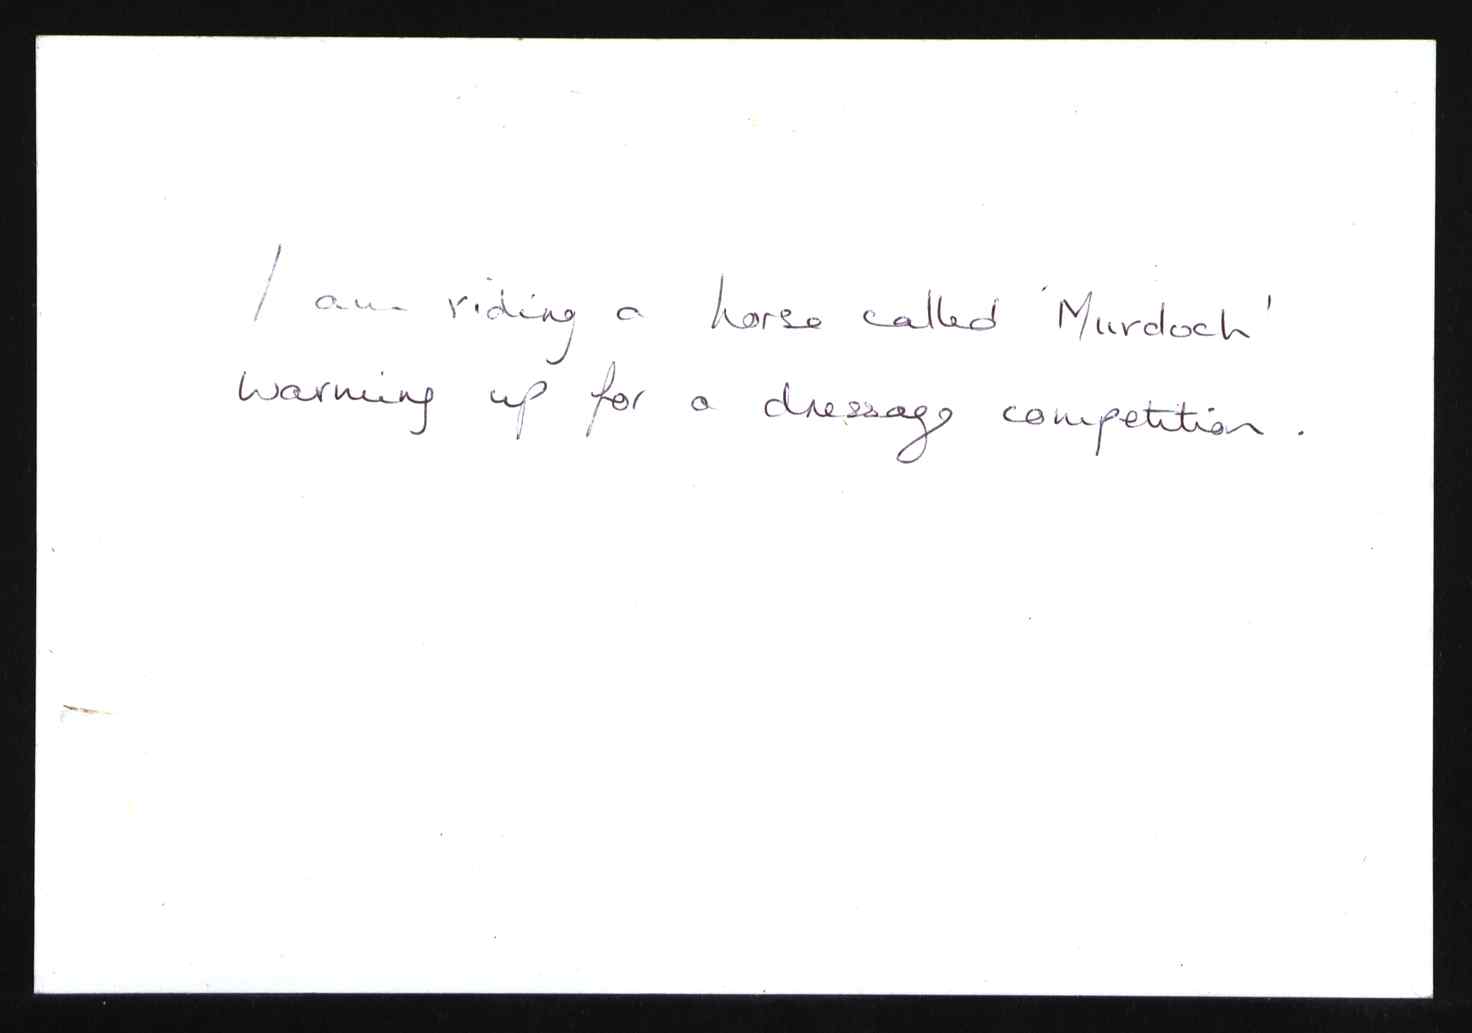 I am riding a horse called 'Murdoch'
warming up for a dressage competition.